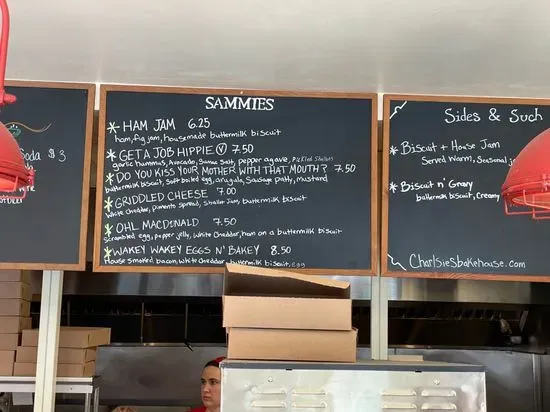 Soda $3
SAMMIES
* HAM JAM 6.25
ham, fig jam, housemade buttermilk biscuit
* GET A JOB HIPPIE Ⓥ 7.50
garlic hummus, Avocado, Sumac Salt, pepper agave, Pickled Shallots
* DO YOU KISS YOUR MOTHER WITH THAT MOUTH? 7.50
buttermilk biscuit, soft boiled egg, arugula, Sausage patty, mustard
* GRIDDLED CHEESE 7.00
White cheddar, pimento spread, jam, buttermilk biscuit
* OHL MACDINALD 7.50
Scrambled egg, pepper jelly, White Cheddar, ham on a buttermilk biscuit
* WAKEY WAKEY EGGS N' BAKEY 8.50
house smoked bacon, White Cheddar, buttermilk biscuit, egg
Sides & Such
* Biscuit + House Jam
Served Warm, Seasonal
* Biscuit n' Gravy
buttermilk biscuit, Creamy
CharlsiesBakehouse.com